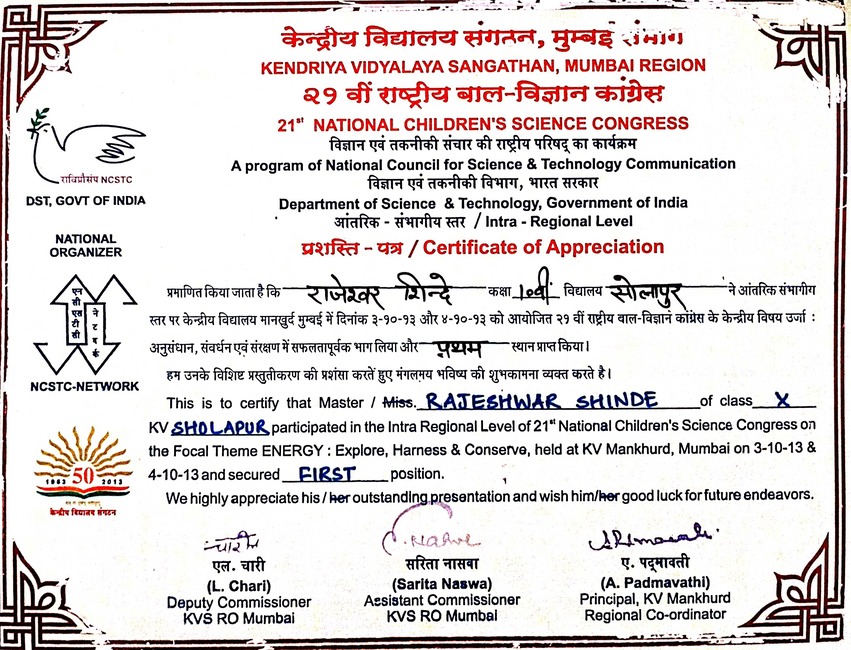 केन्द्रीय विद्यालय संगठन, मुम्बई संभाग
KENDRIYA VIDYALAYA SANGATHAN, MUMBAI REGION
२१ वीं राष्ट्रीय बाल-विज्ञान कांग्रेस
21st NATIONAL CHILDREN'S SCIENCE CONGRESS
विज्ञान एवं तकनीकी संचार की राष्ट्रीय परिषद् का कार्यक्रम
A program of National Council for Science & Technology Communication
विज्ञान एवं तकनीकी विभाग, भारत सरकार
Department of Science & Technology, Government of India
आंतरिक - संभागीय स्तर / Intra - Regional Level
प्रशस्ति - पत्र / Certificate of Appreciation
राविप्रौसंप NCSTC
DST, GOVT OF INDIA
NATIONAL
ORGANIZER
एनसीएसटीसी
नेटवर्क
NCSTC-NETWORK
50
1963 2013
केन्द्रीय विद्यालय संगठन
प्रमाणित किया जाता है कि राजेश्वर शिन्दे कक्षा 10वीं विद्यालय सोलापुर ने आंतरिक संभागीय
स्तर पर केन्द्रीय विद्यालय मानखुर्द मुम्बई में दिनांक ३-१०-१३ और ४-१०-१३ को आयोजित २१ वीं राष्ट्रीय बाल-विज्ञान कांग्रेस के केन्द्रीय विषय उर्जा :
अनुसंधान, संवर्धन एवं संरक्षण में सफलतापूर्वक भाग लिया और प्रथम स्थान प्राप्त किया।
हम उनके विशिष्ट प्रस्तुतीकरण की प्रशंसा करतें हुए मंगलमय भविष्य की शुभकामना व्यक्त करते है।
This is to certify that Master / Miss. RAJESHWAR SHINDE of class X
KV SHOLAPUR participated in the Intra Regional Level of 21st National Children's Science Congress on
the Focal Theme ENERGY : Explore, Harness & Conserve, held at KV Mankhurd, Mumbai on 3-10-13 &
4-10-13 and secured FIRST position.
We highly appreciate his / her outstanding presentation and wish him/her good luck for future endeavors.
चारी
एल. चारी
(L. Chari)
Deputy Commissioner
KVS RO Mumbai
सरिता नासवा
(Sarita Naswa)
Assistant Commissioner
KVS RO Mumbai
ए. पद्मावती
(A. Padmavathi)
Principal, KV Mankhurd
Regional Co-ordinator